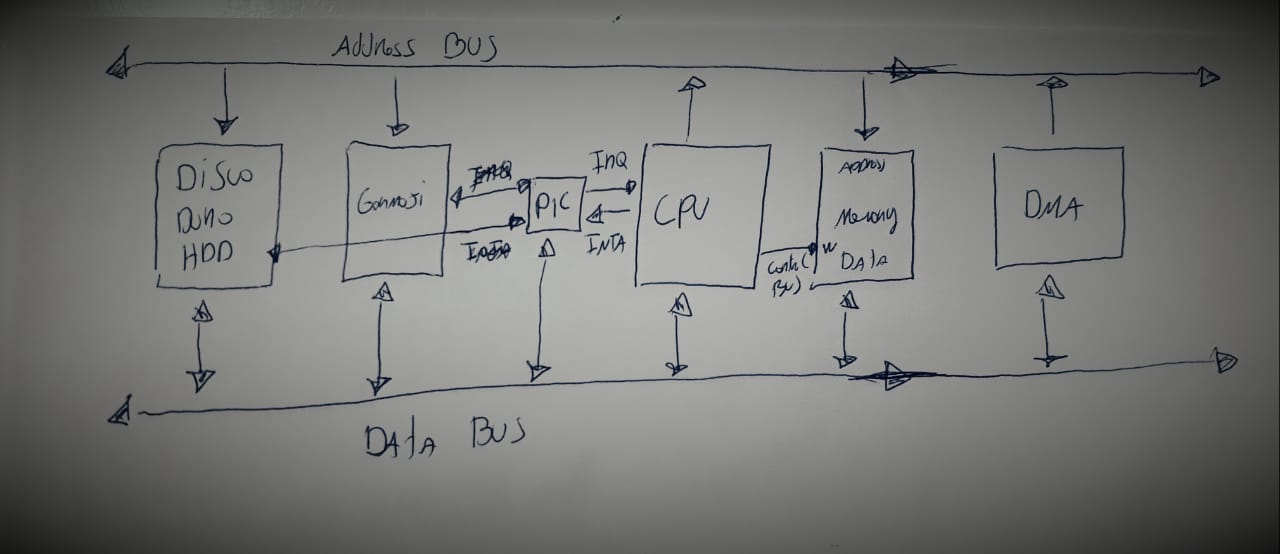 Address BUS
Disco
Duro
HDD
PIC
InQ
INTA
CPU
Control
BUS
Address
Memory
DATA
W
DMA
DATA BUS